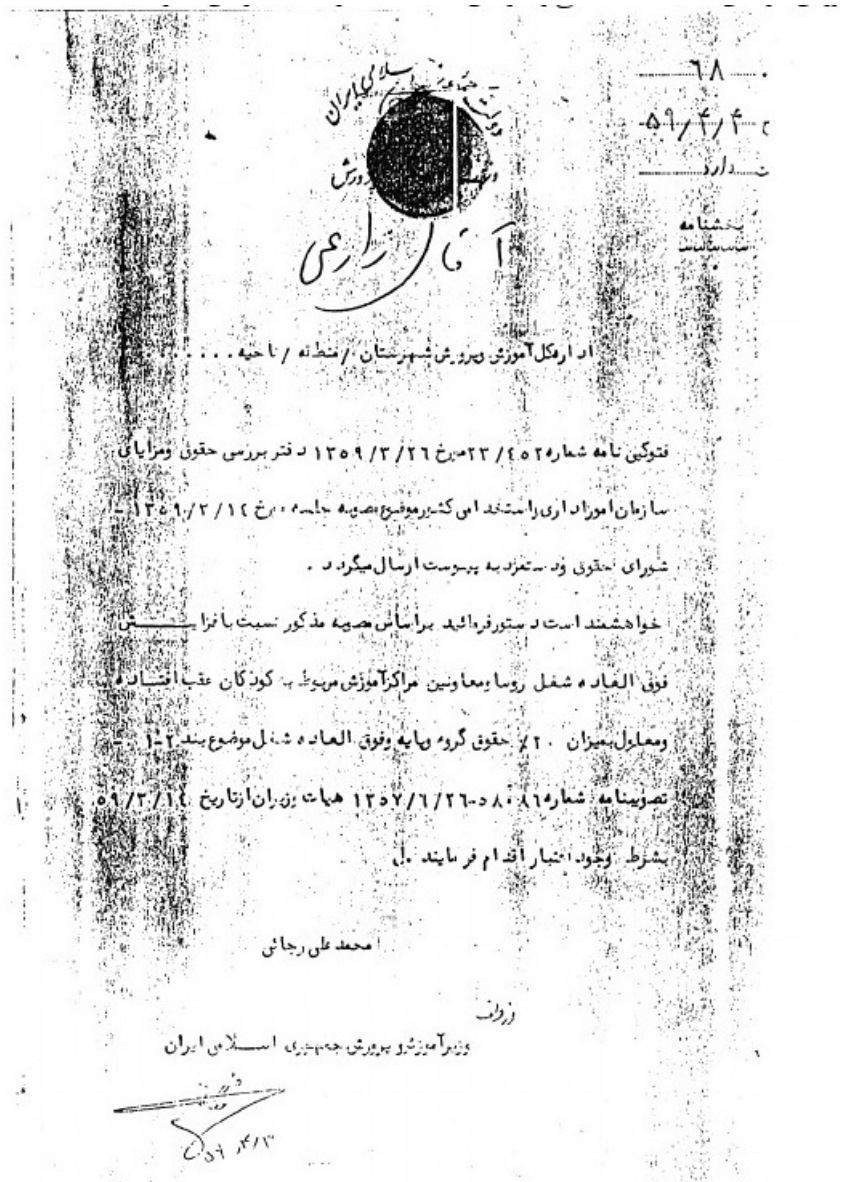 ۶۸
۵۹/۴/۴
دارد
بخشنامه
دولت جمهوری اسلامی ایران
آقای زارعی
اداره کل آموزش و پرورش شهرستان / منطقه / ناحیه . . . . . . .
فتوکپی نامه شماره ۲۳/۴۵۲ مورخ ۱۳۵۹/۳/۲۶ دفتر بررسی حقوق و مزایای
سازمان امور اداری و استخدامی کشور موضوع مصوبه جلسه مورخ ۱۳۵۹/۲/۱۴ -
شورای حقوق و دستمزد به پیوست ارسال میگردد .
خواهشمند است دستور فرمائید براساس مصوبه مذکور نسبت بافزایش
فوق العاده شغل روسا و معاونین مراکز آموزش مربوط به کودکان عقب افتاده
و معلول بمیزان ۲۰٪ حقوق گروه و پایه و فوق العاده شغل موضوع بند ۲-۱ -
تصویبنامه شماره ۵۸۰۸۶-۱۳۵۷/۶/۲۶ هیات وزیران از تاریخ ۵۹/۲/۱۴
بشرط وجود اعتبار اقدام فرمایند .
محمد علی رجائی
وزیر آموزش و پرورش جمهوری اسلامی ایران